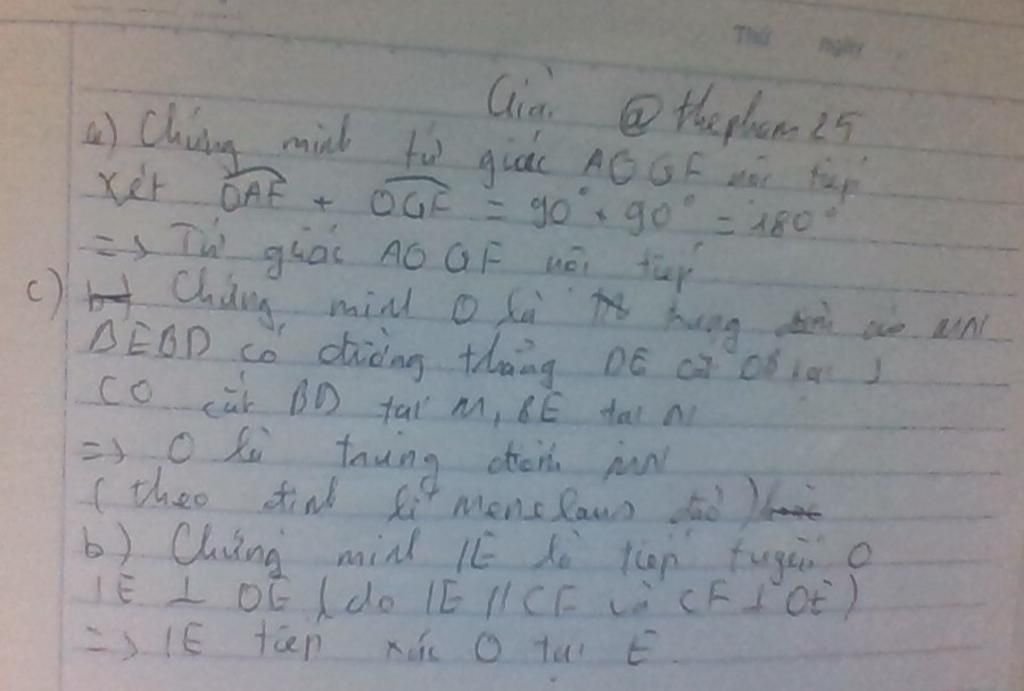 Thứ ngày
Giải @thepham25
a) Chứng minh tứ giác AOGF nội tiếp
Xét OAF + OGF = 90° + 90° = 180°
=> Tứ giác AOGF nội tiếp
c) Chứng minh O là trung điểm của MN
ΔEBD có đường thẳng DE cắt OB tại I
CO cắt BD tại M, BE tại N
=> O là trung điểm MN
(theo định lí Menelaus đảo)
b) Chứng minh IE là tiếp tuyến O
IE ⊥ OE (do IE // CF và CF ⊥ OE)
=> IE tiếp xúc O tại E